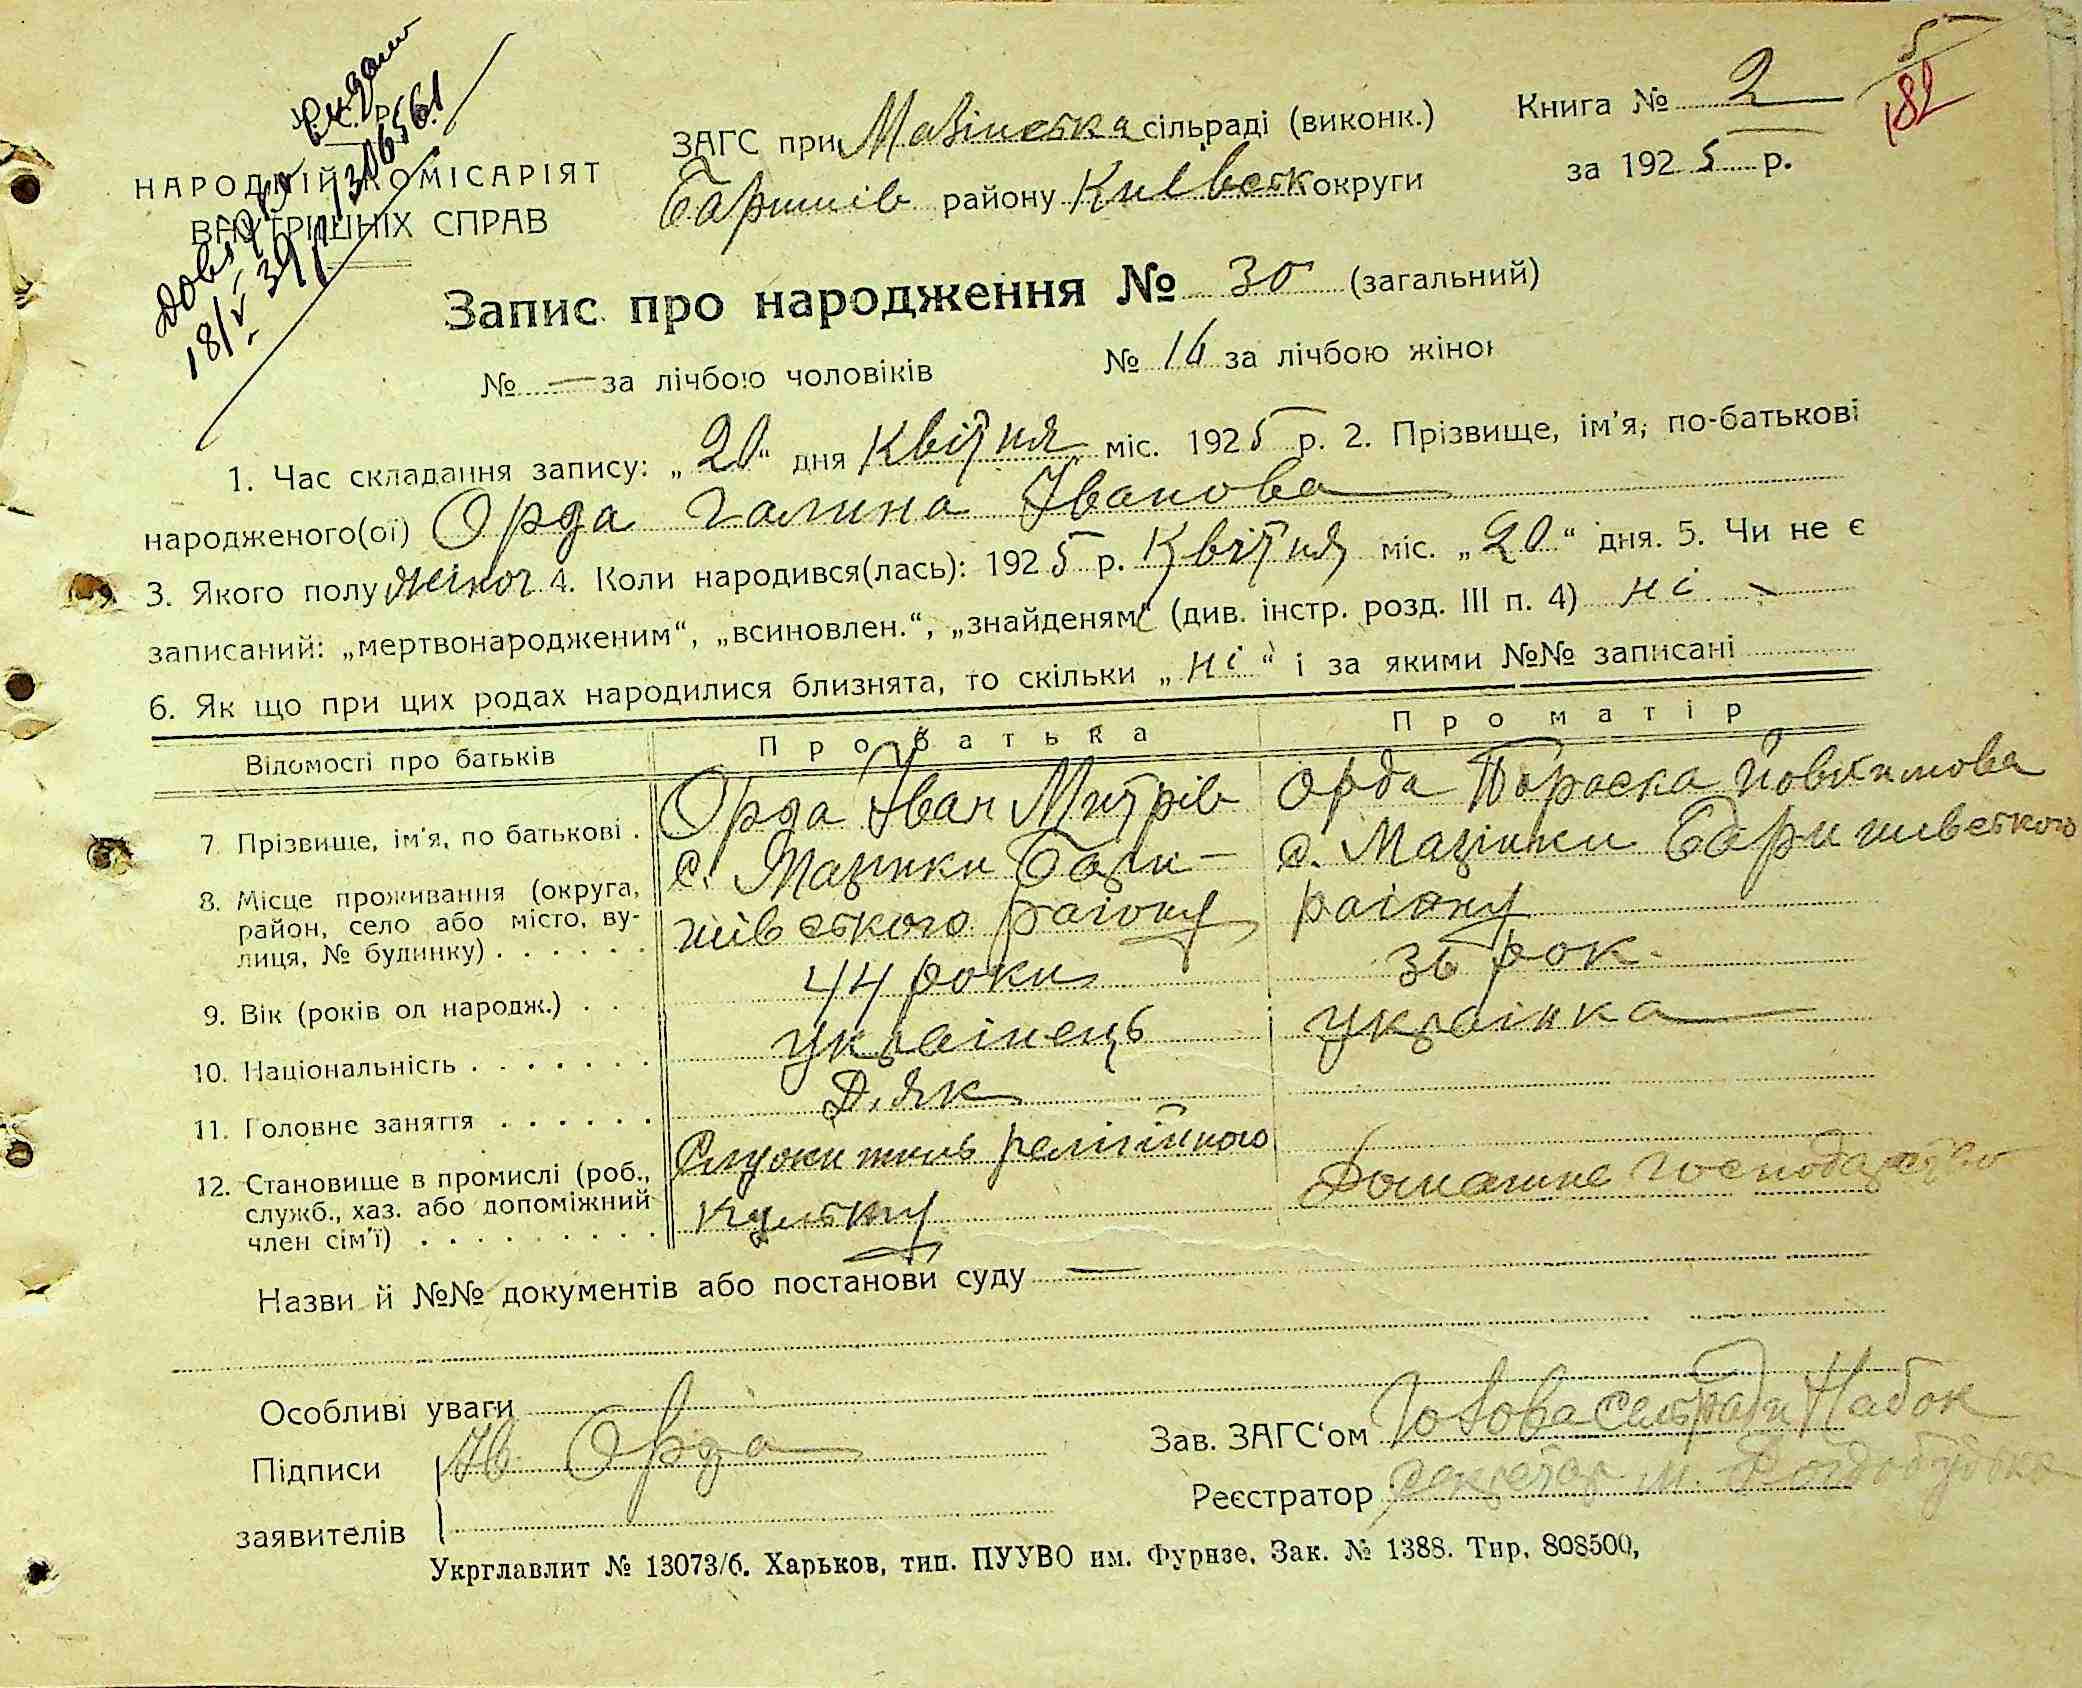 5
182
У.С.Р.Р.
НАРОДНІЙ КОМІСАРІЯТ
ВНУТРІШНІХ СПРАВ
18/V 39
ЗАГС при Мазінська сільраді (виконк.)
Баришів району Київськ округи
Книга № 2
за 1925 р.
Запис про народження № 30 (загальний)
№ — за лічбою чоловіків № 16 за лічбою жінок
1. Час складання запису: „20“ дня Квітня міс. 1925 р. 2. Прізвище, ім'я, по-батькові
народженого(ої) Орда Галина Іванова
3. Якого полу жіноч 4. Коли народився(лась): 1925 р. Квітня міс. „20“ дня. 5. Чи не є
записаний: „мертвонародженим“, „всиновлен.“, „знайденям“ (див. інстр. розд. III п. 4) ні
6. Як що при цих родах народилися близнята, то скільки „ні“ і за якими №№ записані
Відомості про батьків Про батька Про матір
7 Прізвище, ім'я, по батькові . Орда Іван Митрів Орда Параска Йовкимова
8. Місце проживання (округа, район, село або місто, вулиця, № будинку) . . . . . . с. Мазінки Баришівського району с. Мазінки Баришивського району
9. Вік (років од народж.) . . . 44 роки 36 рок.
10. Національність . . . . . . . українець українка
11. Головне заняття . . . . . . Д,як
12. Становище в промислі (роб., служб., хаз. або допоміжний член сім'ї) . . . . . . . . . Служитель релігійного культу Домашне господарство
Назви й №№ документів або постанови суду —
Особливі уваги
Підписи Ів. Орда
заявителів
Зав. ЗАГС'ом Голова сельради Набок
Реєстратор секретар М.
Укрглавлит № 13073/б. Харьков, тип. ПУУВО им. Фурнзе. Зак. № 1388. Тир. 808500,